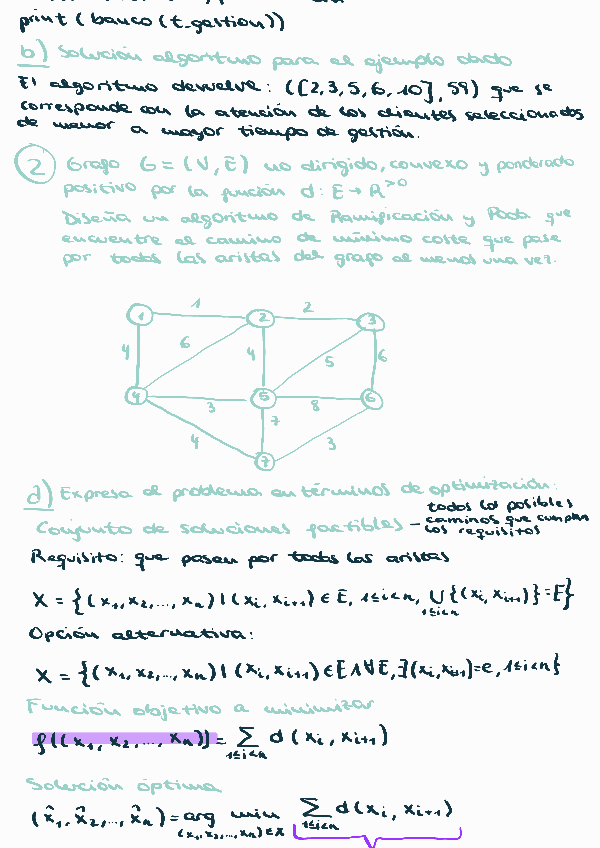 print(banco(t_gestion))
b) Solución algoritmo para el ejemplo dado
El algoritmo devuelve: ([2,3,5,6,10], 59) que se
corresponde con la atención de los clientes seleccionados
de menor a mayor tiempo de gestión.
2 Grafo G = (V, E) no dirigido, convexo y ponderado
positivo por la función d: E → R^>0
Diseña un algoritmo de Ramificación y Poda que
encuentre el camino de mínimo coste que pase
por todas las aristas del grafo al menos una vez.
1 1 2 2 3
4 6 4 5 6
4 3 5 8 6
4 7 3
7
a) Expresa el problema en términos de optimización:
Conjunto de soluciones factibles – todos los posibles
caminos que cumplan
los requisitos
Requisito: que pasen por todas las aristas
X = {(x₁, x₂, ..., xₙ) | (xᵢ, xᵢ₊₁) ∈ E, 1≤i<n, ⋃_{1≤i<n} {(xᵢ, xᵢ₊₁)} = E}
Opción alternativa:
X = {(x₁, x₂, ..., xₙ) | (xᵢ, xᵢ₊₁) ∈ E ∧ ∀E, ∃(xᵢ, xᵢ₊₁) = e, 1≤i<n}
Función objetivo a minimizar
f((x₁, x₂, ..., xₙ)) = ∑_{1≤i<n} d(xᵢ, xᵢ₊₁)
Solución óptima
(x̂₁, x̂₂, ..., x̂ₙ) = arg min_{(x₁, x₂, ..., xₙ) ∈ X} ∑_{1≤i<n} d(xᵢ, xᵢ₊₁)